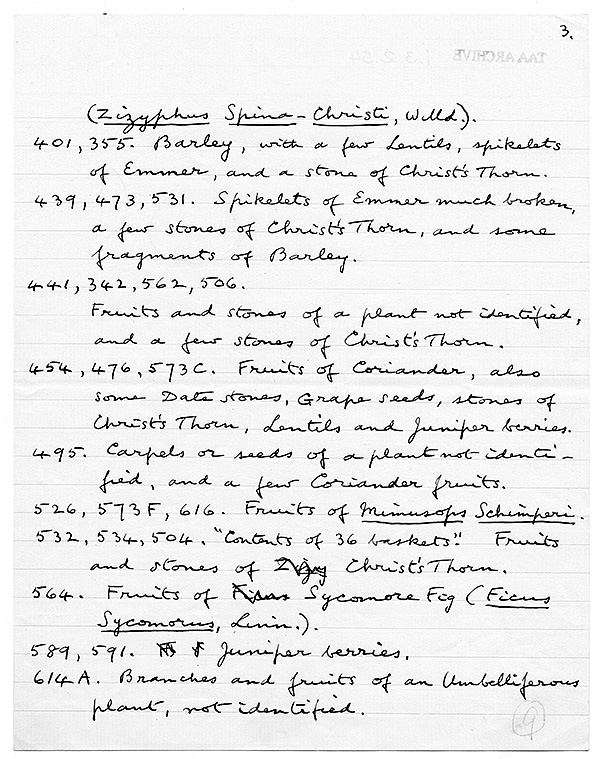 3.
TAA ARCHIVE 1.3.2.54
(Zizyphus Spina-Christi, Willd).
401, 355. Barley, with a few Lentils, spikelets
of Emmer, and a stone of Christ's Thorn.
439, 473, 531. Spikelets of Emmer much broken,
a few stones of Christ's Thorn, and some
fragments of Barley.
441, 342, 562, 506.
Fruits and stones of a plant not identified,
and a few stones of Christ's Thorn.
454, 476, 573C. Fruits of Coriander, also
some Date stones, Grape seeds, stones of
Christ's Thorn, Lentils and Juniper berries.
495. Carpels or seeds of a plant not identi-
fied, and a few Coriander fruits.
526, 573F, 616. Fruits of Mimusops Schimperi.
532, 534, 504. "Contents of 36 baskets". Fruits
and stones of Christ's Thorn.
564. Fruits of Sycomore Fig (Ficus
Sycomorus, Linn.).
589, 591. Juniper berries.
614A. Branches and fruits of an Umbelliferous
plant, not identified.
9